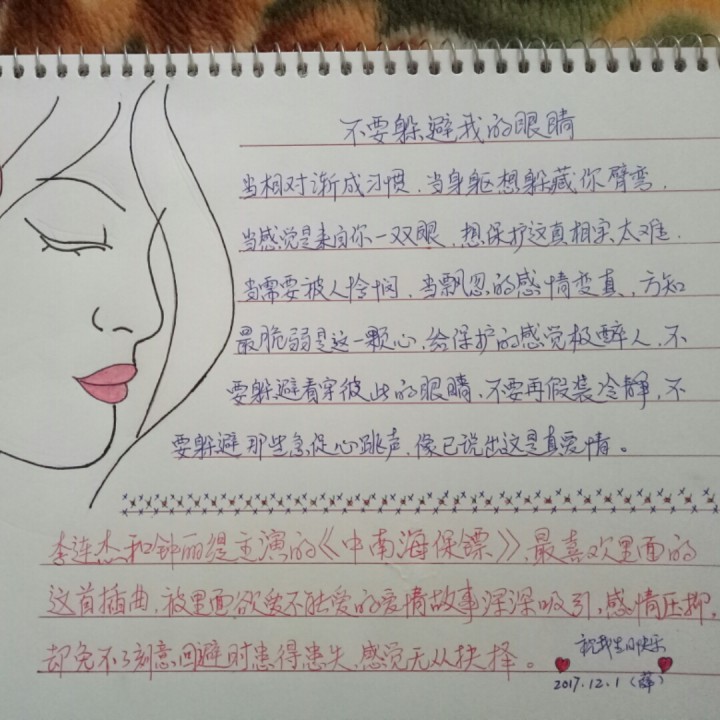 不要躲避我的眼睛
当相对渐成习惯，当身躯想躲藏你臂弯，
当感觉是来自你一双眼，想保护这真相实太难．
当需要被人怜悯，当飘忽的感情变真，方知
最脆弱是这一颗心，给保护的感觉极醉人，不
要躲避看穿彼此的眼睛，不要再假装冷静，不
要躲避那些急促心跳声，像已说出这是真爱情。
李连杰和钟丽缇主演的《中南海保镖》，最喜欢里面的
这首插曲，被里面欲爱不能爱的爱情故事深深吸引，感情压抑，
却免不了刻意回避时患得患失，感觉无从抉择。
祝我生日快乐
2017.12.1（薛）